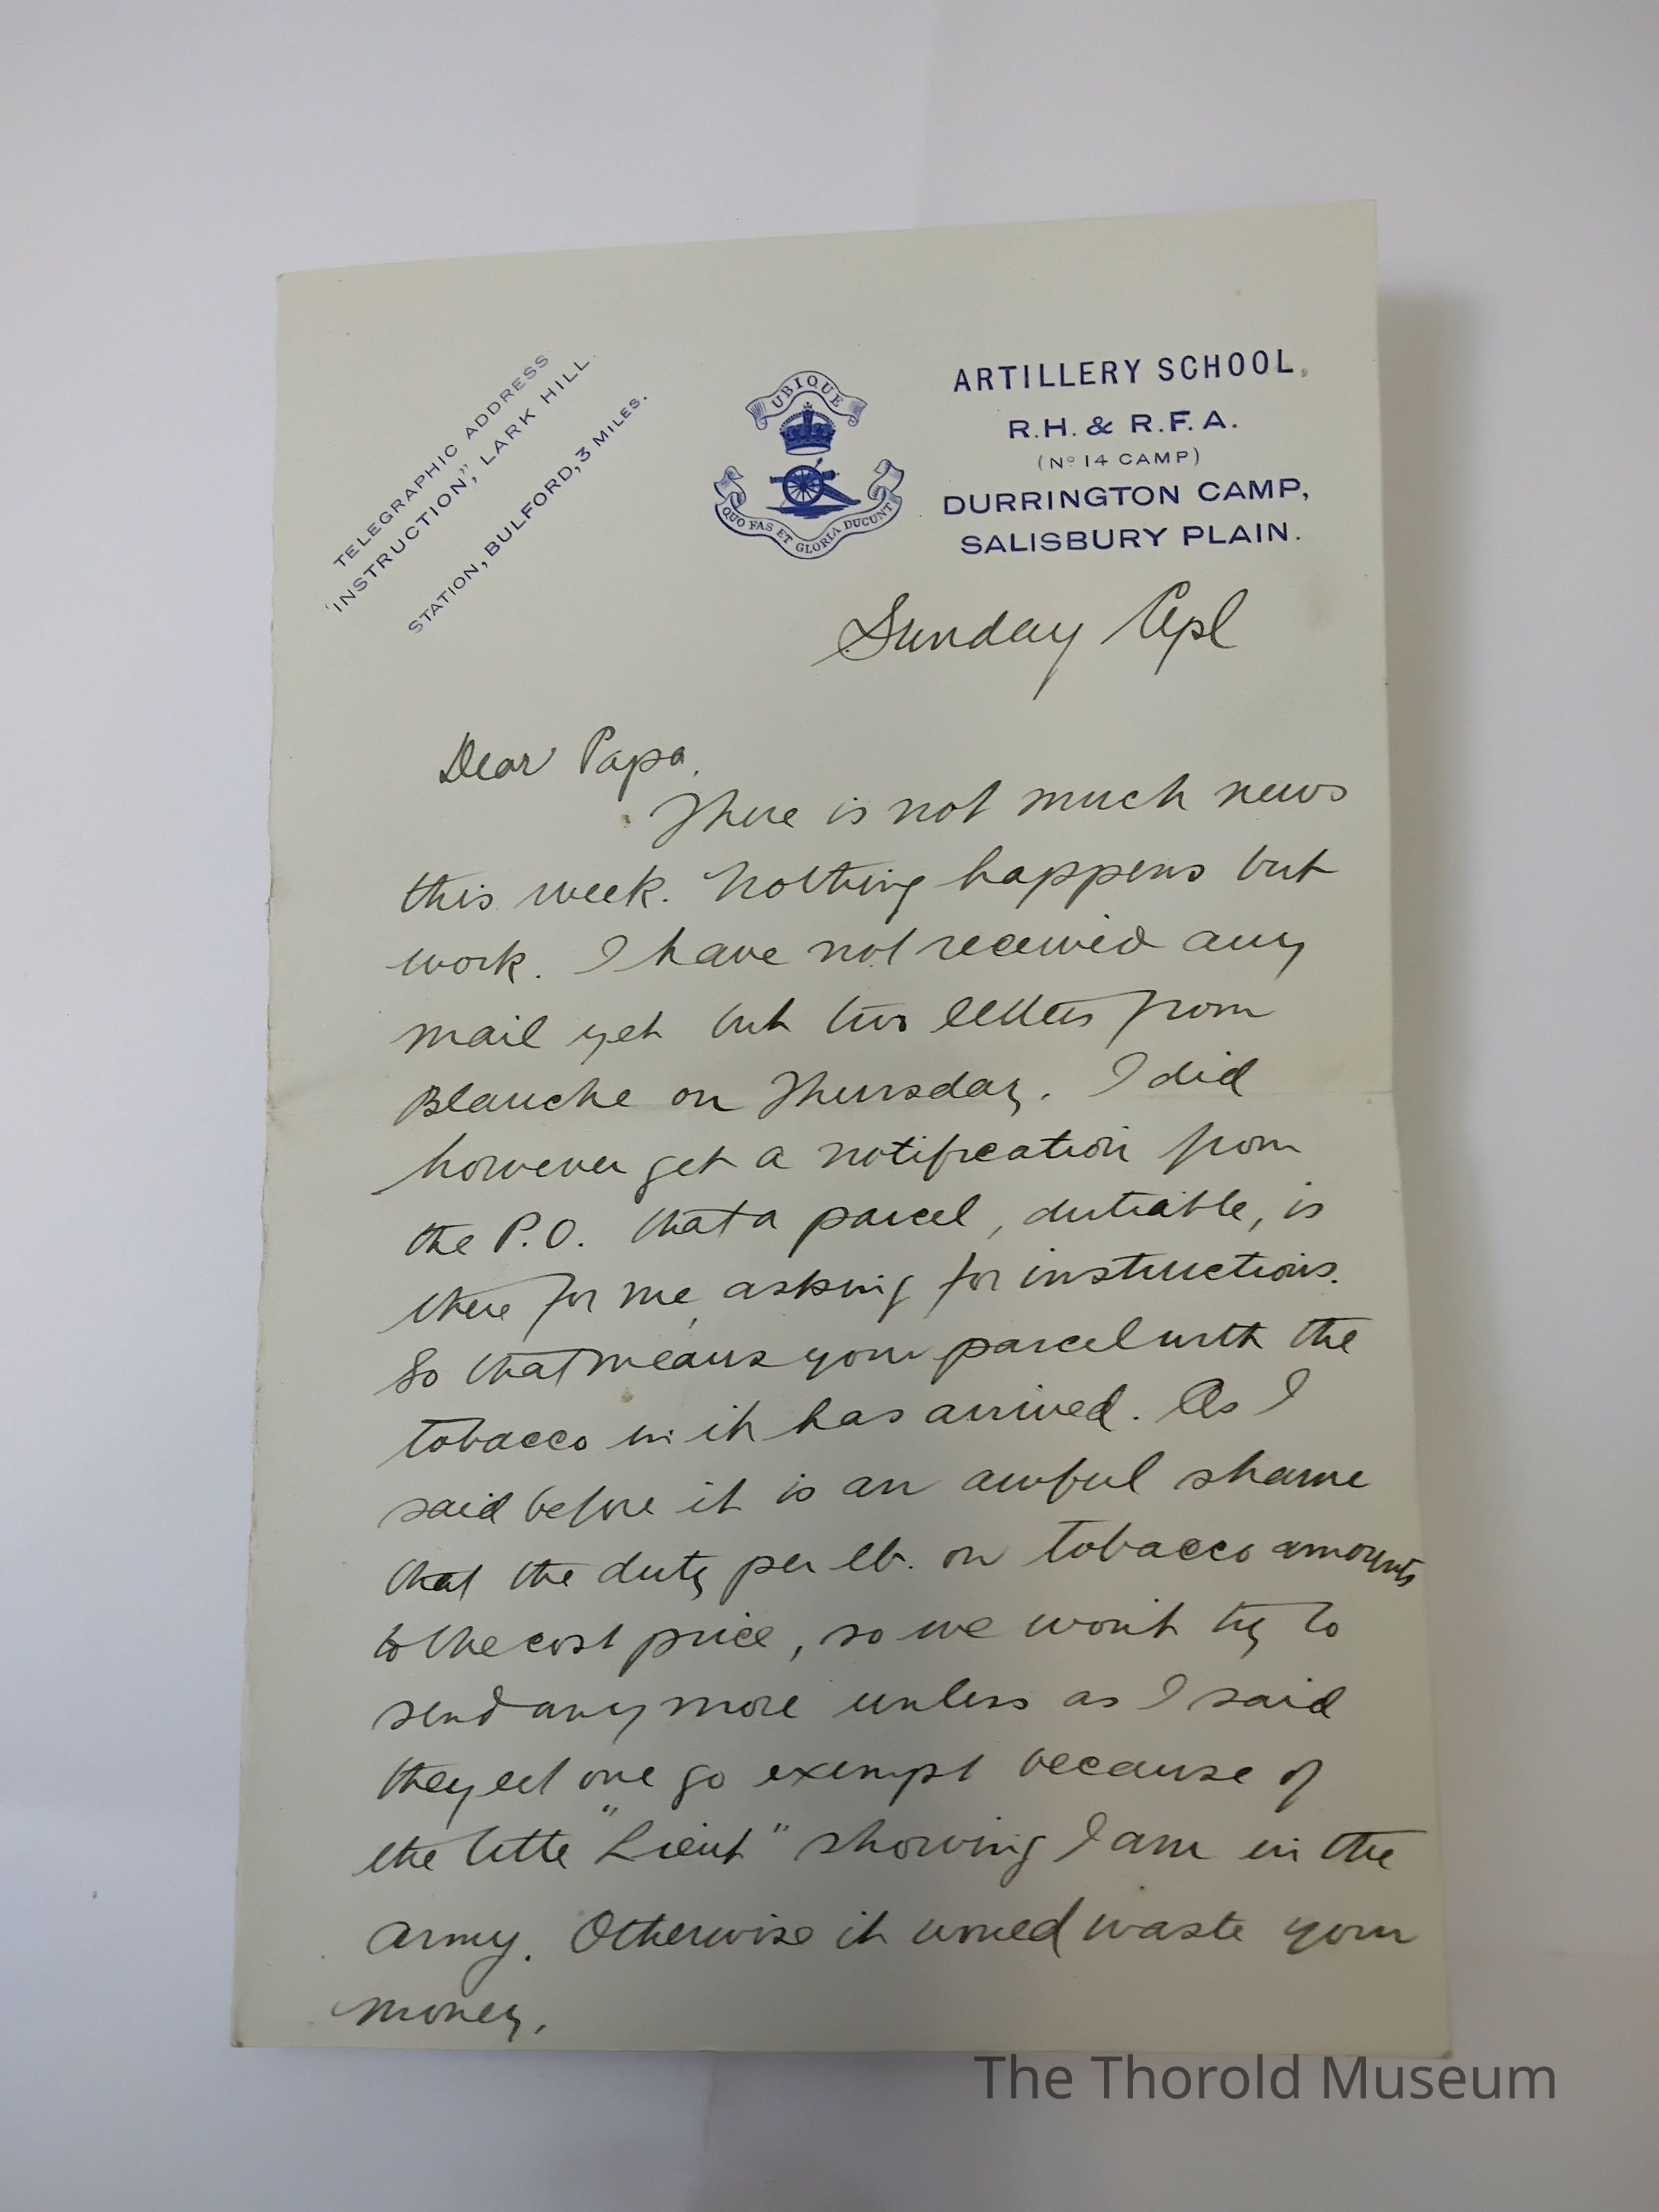 TELEGRAPHIC ADDRESS
"INSTRUCTION," LARK HILL.
STATION, BULFORD, 3 MILES.
UBIQUE
QUO FAS ET GLORIA DUCUNT
ARTILLERY SCHOOL,
R.H. & R.F.A.
(No 14 CAMP)
DURRINGTON CAMP,
SALISBURY PLAIN.
Sunday Apl
Dear Papa,
There is not much news
this week. Nothing happens but
work. I have not received any
mail yet but two letters from
Blanche on Thursday. I did
however get a notification from
the P.O. that a parcel, dutiable, is
there for me, asking for instructions.
So that means your parcel with the
tobacco in it has arrived. As I
said before it is an awful shame
that the duty per lb. on tobacco amounts
to the cost price, so we won't try to
send any more unless as I said
they let one go exempt because of
the little "Lieut" showing I am in the
Army. Otherwise it would waste your
money.
The Thorold Museum